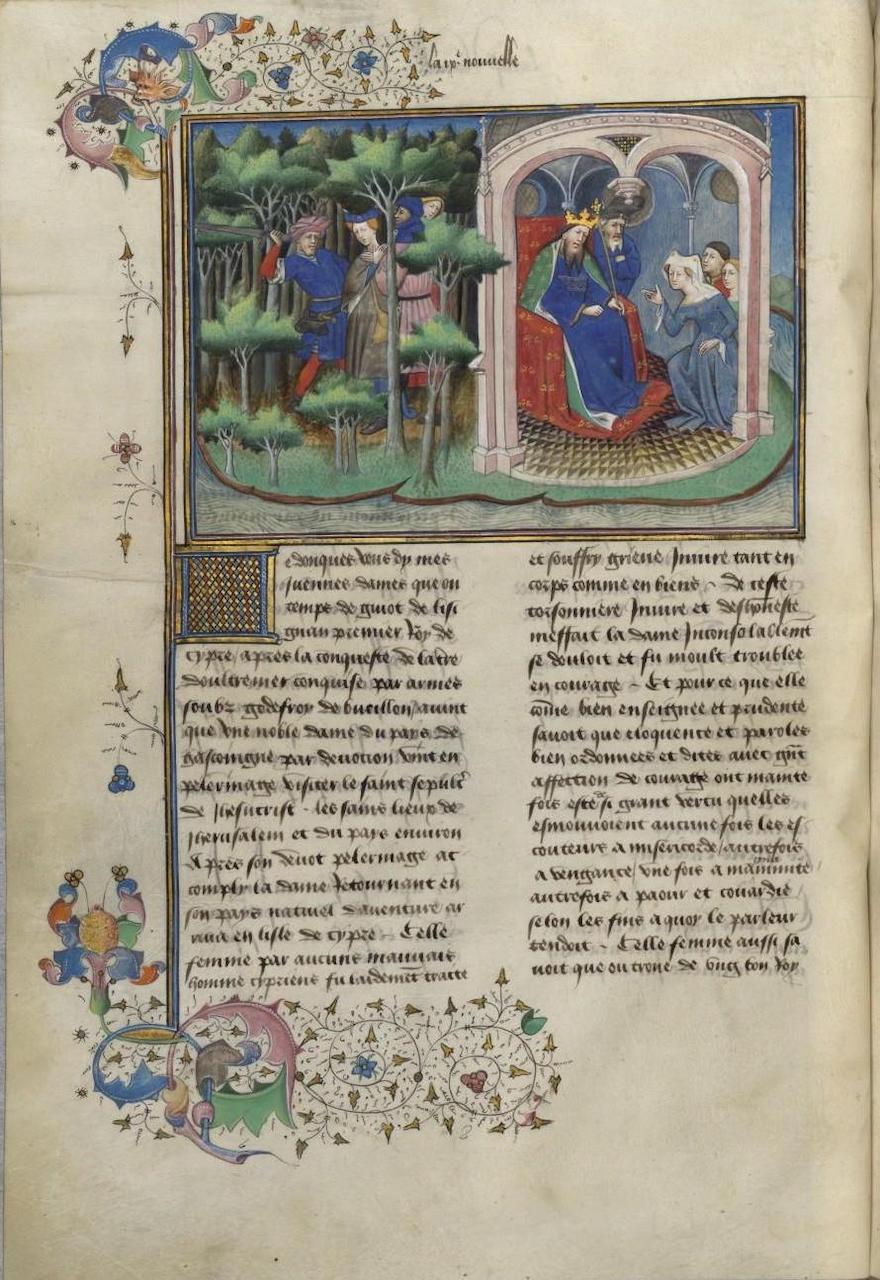 la ixe nouvelle
e donques vous dy mes
iuennes dames que ou
temps de guiot de lisi
gnan premier Roy de
cypre / apres la conqueste de la tre
doultremer conquise par armes
soubz godefroy de bucillon / avint
que une noble dame du pays de
gascoingne par devotion vint en
pelerinage visiter le saint sepulcre
de Jhesucrist - les sains lieux de
Jherusalem et du pays environ
Apres son devot pelerinage ac
comply la dame Retournant en
son pays natuel daventure ar
riva en lisle de cypre - Celle
femme par aucuns mauvais
homme cypriens fu laidemet tractee
et souffry grieve Iniure tant en
corps comme en biens - De ceste
torsonniere Iniure et deshoneste
meffait la dame Inconsolablemt
se douloit et fu moult troublee
en courage - Et pour ce que elle
come bien enseignee et prudente
savoit que eloquence et paroles
bien ordonnees et dites avec gnt
affection de courage ont mainte
fois este si grant vertu quelles
esmouvoient aucune fois les es
couteurs a misericorde / autrefois
a vengance / une fois a
autrefois a paour et couardie
selon les fins a quoy le parleur
tendoit - Celle femme aussi sa
voit que ou trone de bung ton Roy